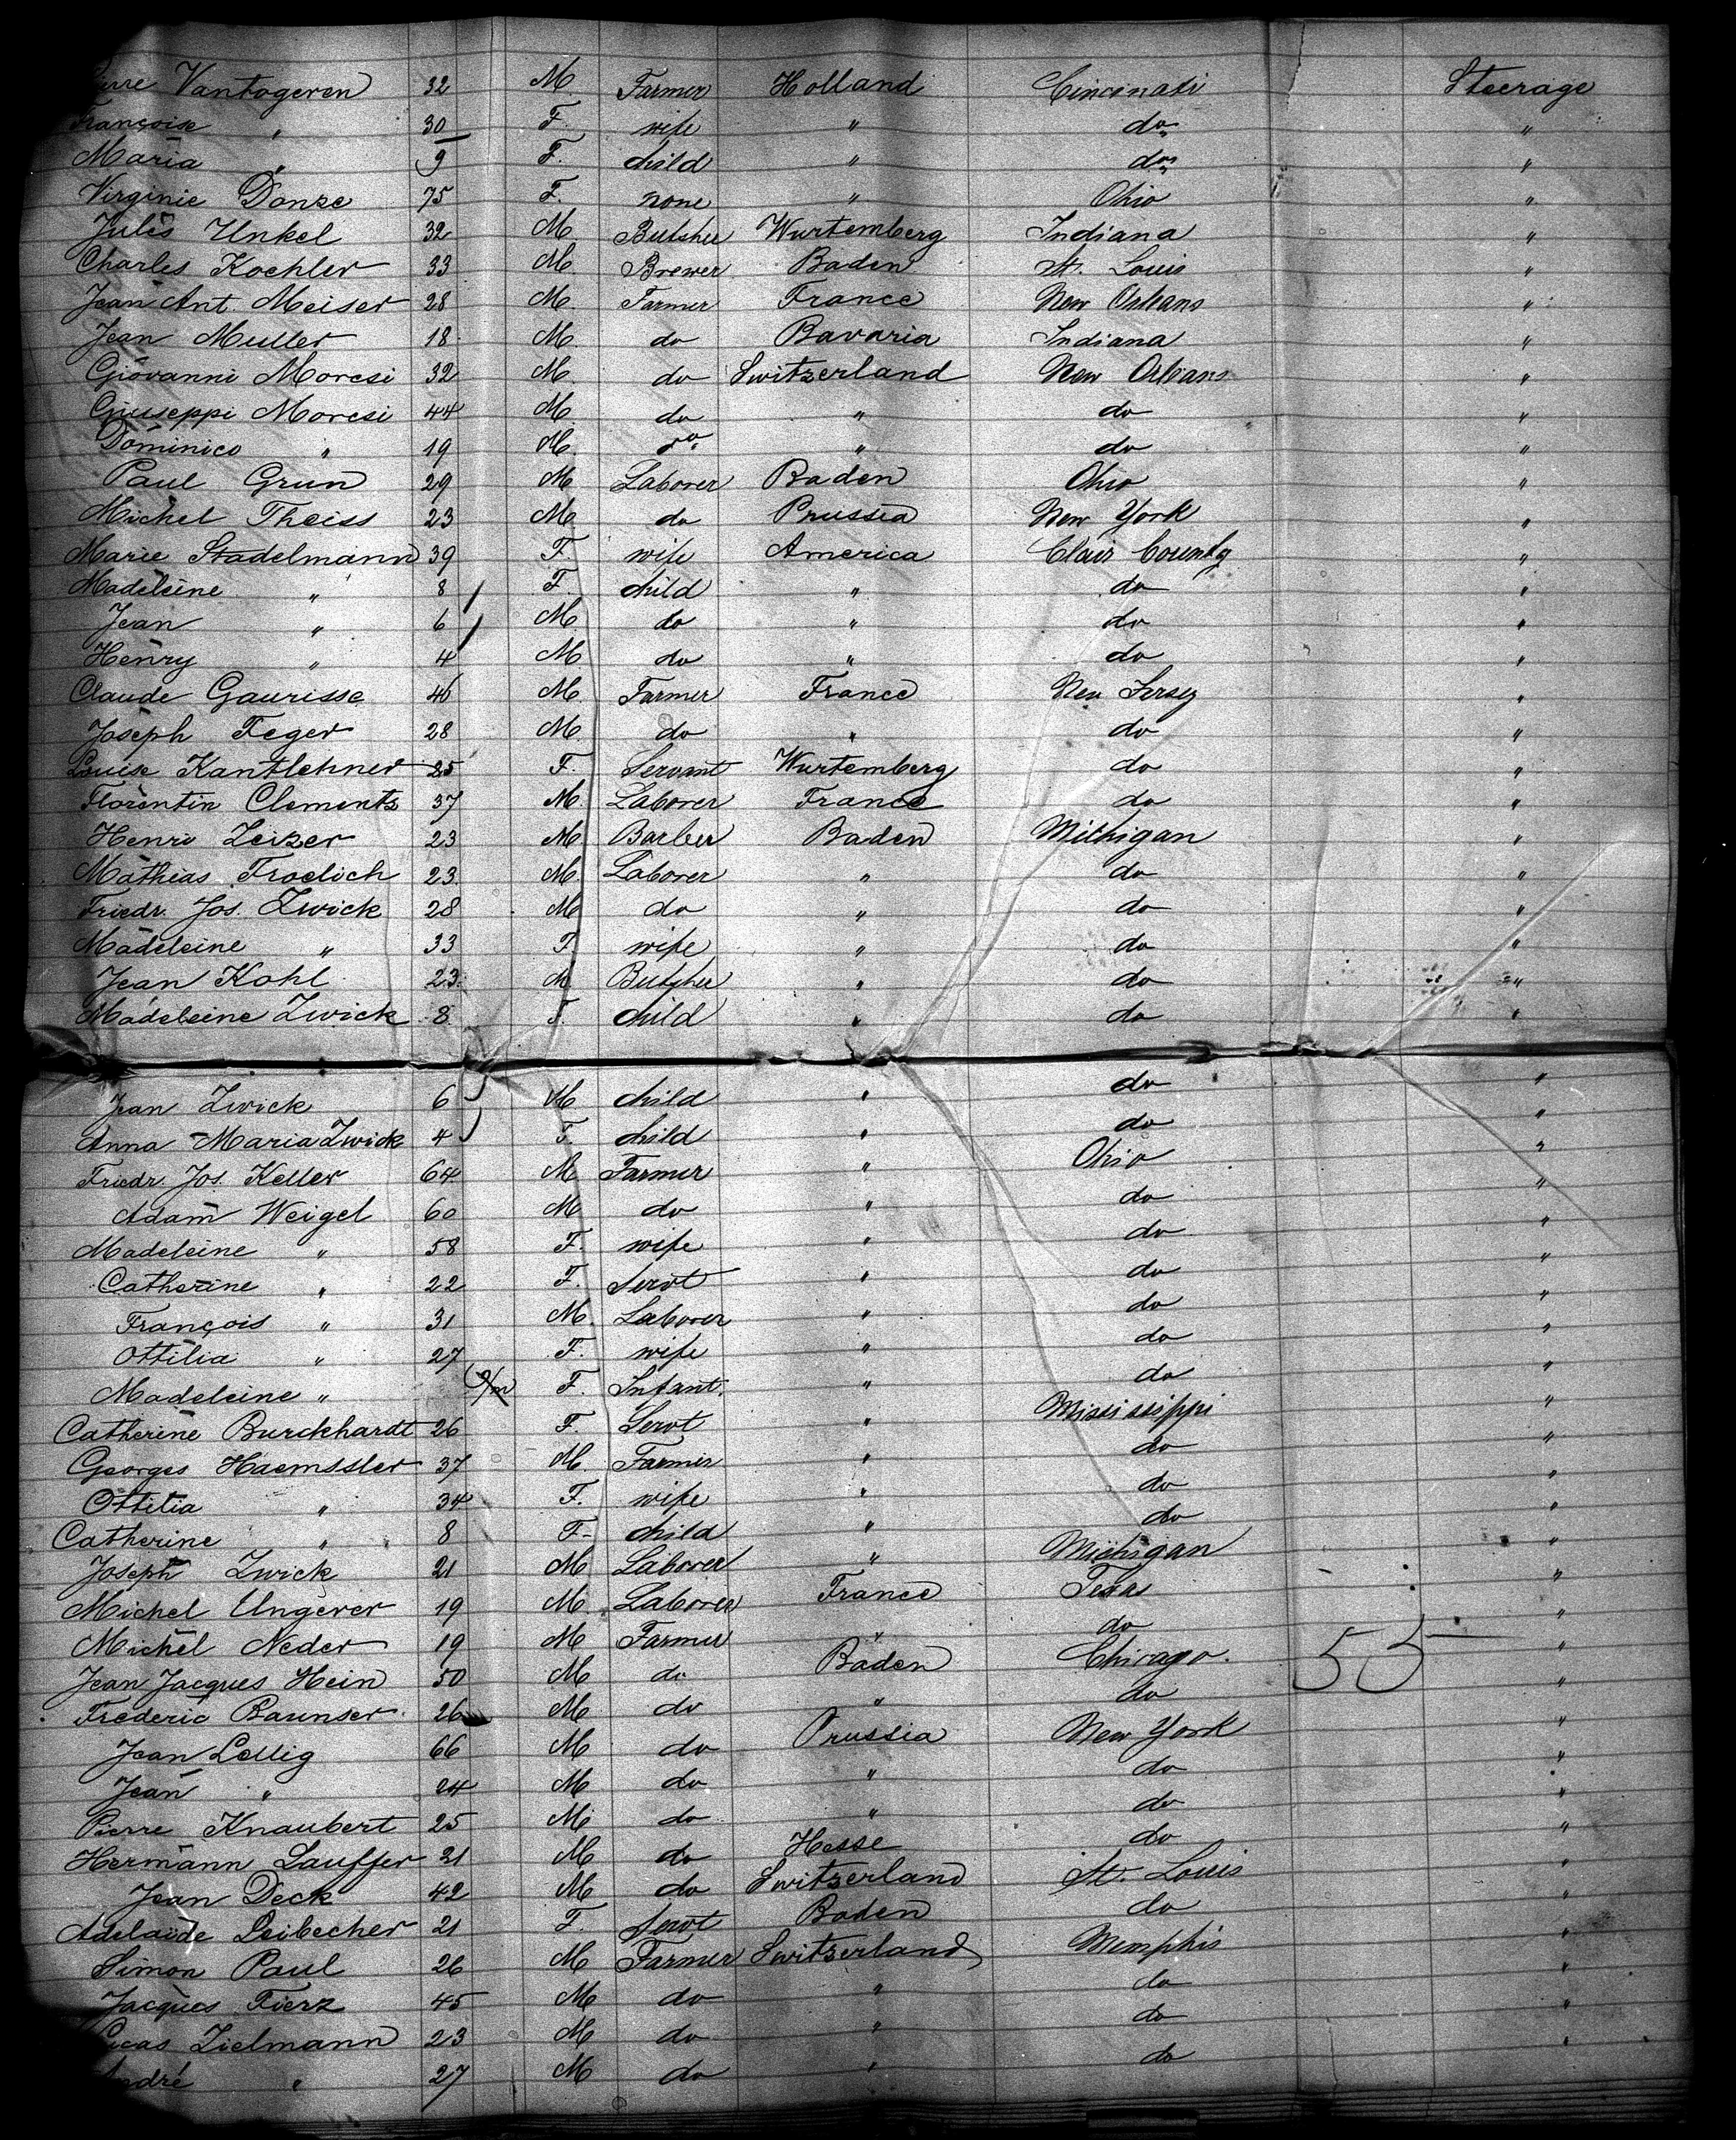 Vantogeren 32 M. Farmer Holland Cincinati Steerage
Françoise " 30 F. wife " do "
Maria " 9 F. child " do "
Virginie Donze 75 F. none " Ohio "
Jules Unkel 32 M Butcher Wurtemberg Indiana "
Charles Koehler 33 M. Brewer Baden St. Louis "
Jean Ant. Meiser 28 M. Farmer France New Orleans "
Jean Muller 18 M. do Bavaria Indiana "
Giovanni Moresi 32 M. do Switzerland New Orleans "
Giuseppi Moresi 44 M. do " do "
Dominico " 19 M. do " do "
Paul Grun 29 M Laborer Baden Ohio "
Michel Theiss 23 M. do Prussia New York "
Marie Stadelmann 39 F. wife America Clair County "
Madeleine " 8 F. child " do "
Jean " 6 M. do " do "
Henry " 4 M do " do "
Claude Gaurisse 46 M. Farmer France New Jersey "
Joseph Feger 28 M. do " do "
Louise Kantlehner 25 F. Servant Wurtemberg do "
Florentin Clements 37 M. Laborer France do "
Henri Zeizer 23 M Barber Baden Michigan "
Mathias Froelich 23 M. Laborer " do "
Friedr. Jos. Zwick 28 M do " do "
Madeleine " 33 F. wife " do "
Jean Kohl 23 M Butcher " do "
Madeleine Zwick 8 F. child " do "
Jean Zwick 6 M child " do "
Anna Maria Zwick 4 F. child " do "
Friedr. Jos. Keller 64 M Farmer " Ohio "
Adam Weigel 60 M do " do "
Madeleine " 58 F. wife " do "
Catherine " 22 F. Servt " do "
François " 31 M. Laborer " do "
Ottilia " 27 F. wife " do "
Madeleine " F. Infant. " do "
Catherine Burckhardt 26 F. Servt " Mississippi "
Georges Haemssler 37 M. Farmer " do "
Ottilia " 34 F. wife " do "
Catherine " 8 F. child " do "
Joseph Zwick 21 M Laborer " Michigan "
Michel Ungerer 19 M. Laborer France Texas "
Michel Neder 19 M Farmer " do "
Jean Jacques Hein 50 M do Baden Chicago. 55 "
Frederic Baunser 26 M. do " do "
Jean Lellig 66 M do Prussia New York "
Jean " 24 M do " do "
Pierre Knaubert 25 M. do " do "
Hermann Lauffer 21 M do Hesse do "
Jean Deck 42 M do Switzerland St. Louis "
Adelaïde Leibecher 21 F. Servt Baden do "
Simon Paul 26 M Farmer Switzerland Memphis "
Jacques Fierz 45 M do " do "
Zielmann 23 M do " do "
André " 27 M do " do